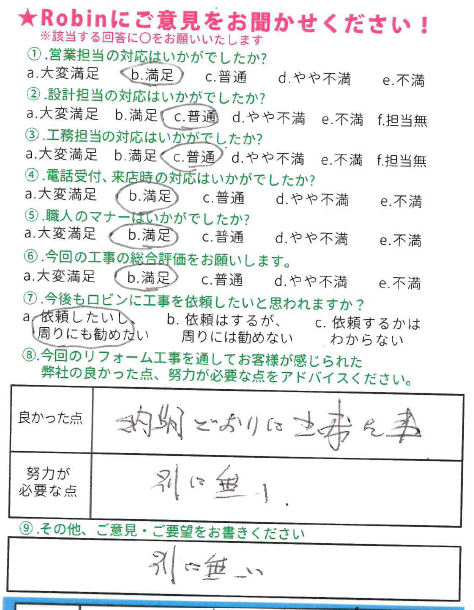 ★Robinにご意見をお聞かせください！
※該当する回答に〇をお願いいたします
①.営業担当の対応はいかがでしたか?
a.大変満足 b.満足 c.普通 d.やや不満 e.不満
②.設計担当の対応はいかがでしたか?
a.大変満足 b.満足 c.普通 d.やや不満 e.不満 f.担当無
③.工務担当の対応はいかがでしたか?
a.大変満足 b.満足 c.普通 d.やや不満 e.不満 f.担当無
④.電話受付、来店時の対応はいかがでしたか?
a.大変満足 b.満足 c.普通 d.やや不満 e.不満
⑤.職人のマナーはいかがでしたか?
a.大変満足 b.満足 c.普通 d.やや不満 e.不満
⑥.今回の工事の総合評価をお願いします。
a.大変満足 b.満足 c.普通 d.やや不満 e.不満
⑦.今後もロビンに工事を依頼したいと思われますか？
a.依頼したいし、 b. 依頼はするが、 c. 依頼するかは
周りにも勧めたい 周りには勧めない わからない
⑧.今回のリフォーム工事を通してお客様が感じられた
弊社の良かった点、努力が必要な点をアドバイスください。
良かった点
納期どおりに
努力が
必要な点
別に無い.
⑨.その他、ご意見・ご要望をお書きください
別に無い